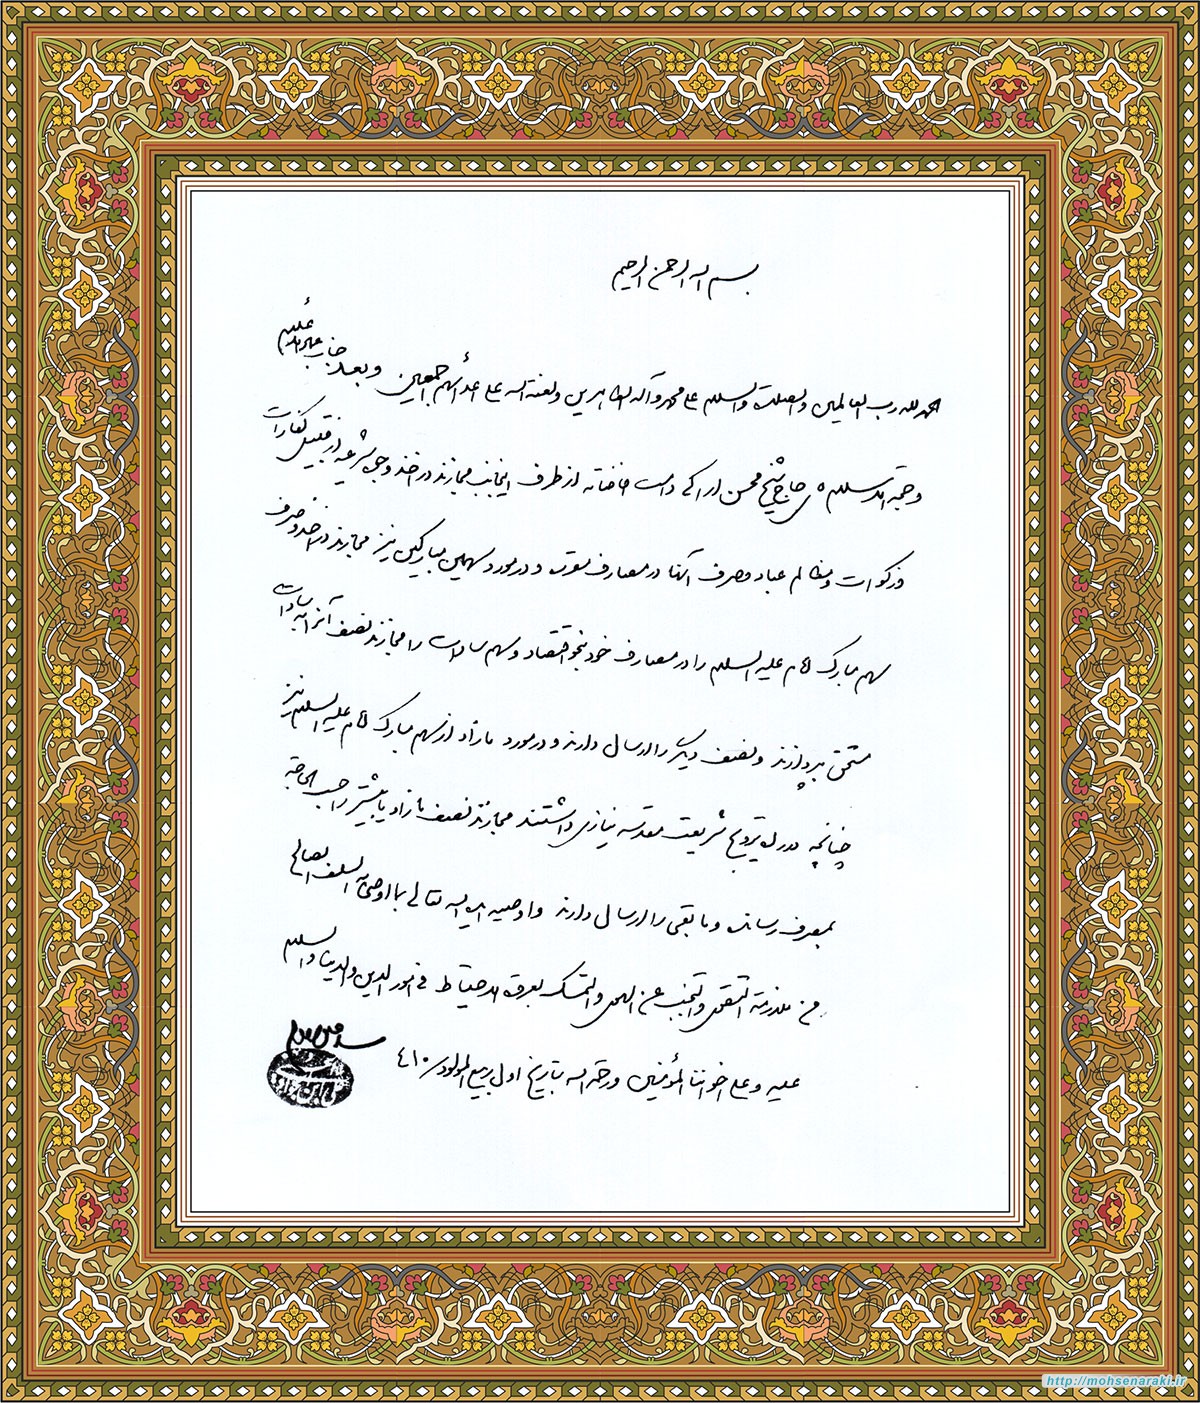 بسم الله الرحمن الرحیم
الحمد لله رب العالمین والصلاة والسلام علی محمد وآله الطاهرین ولعنة الله علی اعدائهم اجمعین وبعد جناب عماد الاعلام
وحجة الاسلام حاج شیخ محسن اراکی دامت افاضاته از طرف اینجانب مجازند در اخذ وجوه شرعیه از قبیل کفارات
وزکوات ومظالم عباد وصرف آنها در مصارف مقرره و در مورد سهمین مبارکین نیز مجازند در اخذ و صرف
سهم مبارک امام علیه السلام را در مصارف خود بنحو اقتصاد و سهم سادات را مجازند نصف آنرا به سادات
مستحق بپردازند و نصف دیگر را ارسال دارند و در مورد مازاد از سهم مبارک امام علیه السلام نیز
چنانچه در راه ترویج شریعت مقدسه نیازی داشتند مجازند نصف مازاد یا بیشتر را حسب الحاجة
بمصرف رسانده و مابقی را ارسال دارند واوصیه ایده الله تعالی بما اوصی به السلف الصالح
من ملازمة التقوی والتجنب عن الهوی والتمسک بعروة الاحتیاط فی امور الدین والدنیا والسلام
علیه وعلی اخواننا المؤمنین ورحمة الله بتاریخ اول ربیع المولود ۴۱۰